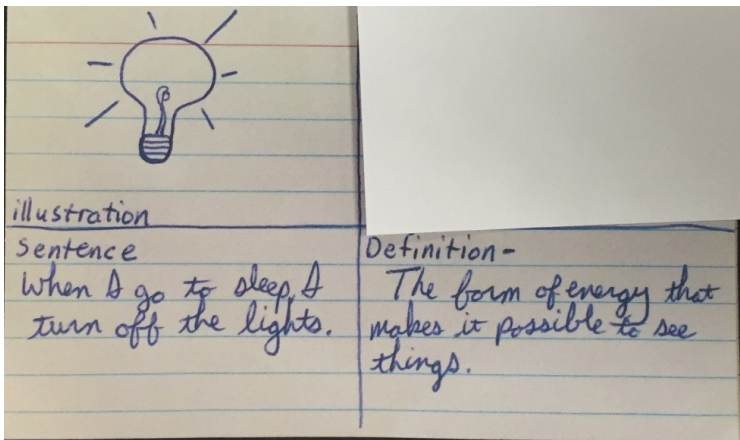 illustration
Sentence
When I go to sleep, I
turn off the lights.
Definition-
The form of energy that
makes it possible to see
things.